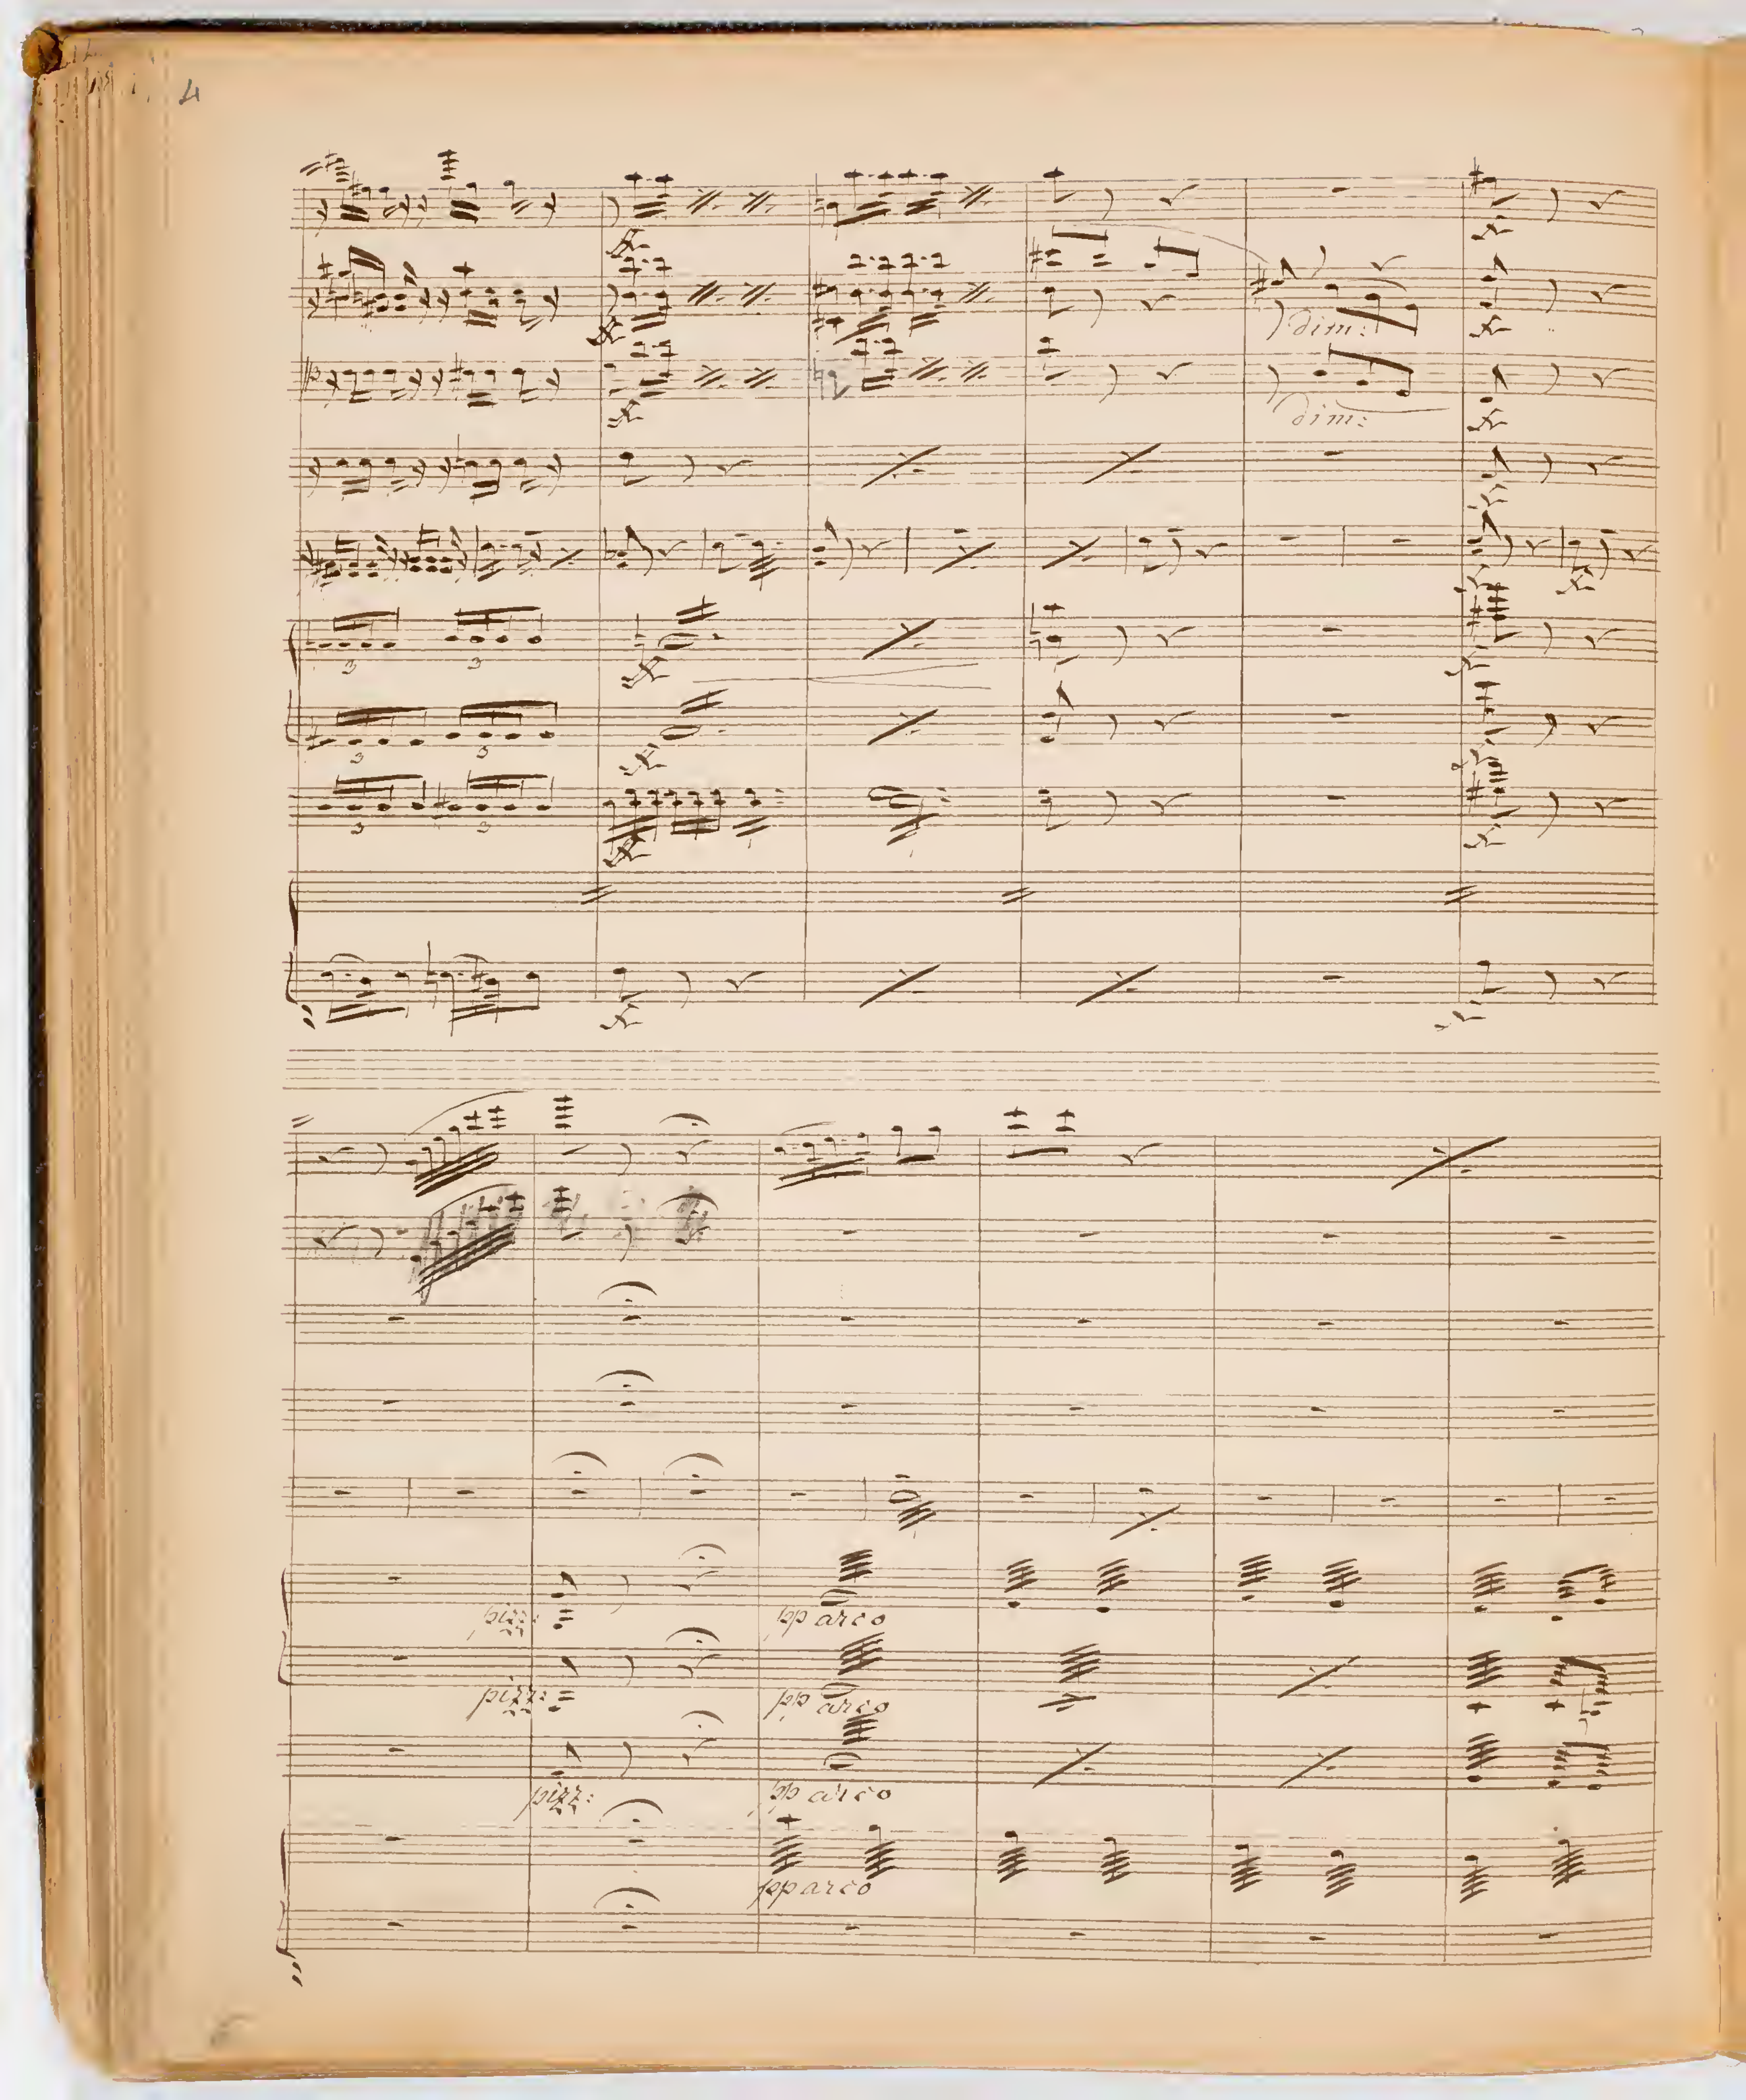 4
dim:
dim:
3 3
3 3
3 3
pizz: pp arco
pizz: pp arco
pizz: pp arco
pp arco